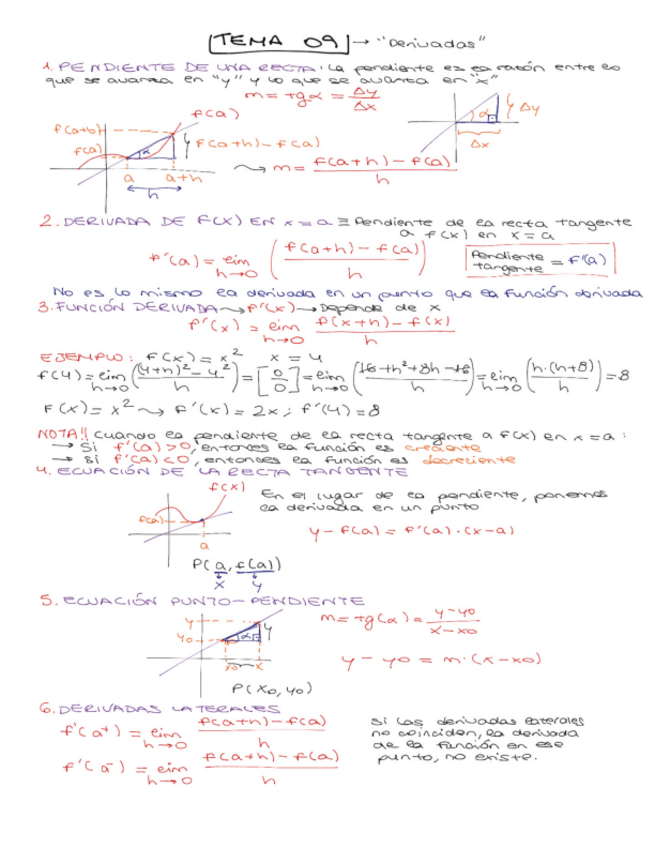 TEMA 09 → "Derivadas"
1. PENDIENTE DE UNA RECTA: La pendiente es la razón entre lo
que se avanza en "y" y lo que se avanza en "x"
m = tgα = Δy/Δx
f(a)
f(a+b)
f(a)
α
y f(a+h) - f(a)
a a+h
h
⤳ m = (f(a+h) - f(a))/h
α y Δy
Δx
2. DERIVADA DE F(X) EN x = a ≡ Pendiente de la recta tangente
a f(x) en x = a
f'(a) = lim h→0 ((f(a+h) - f(a))/h)
Pendiente tangente = f'(a)
No es lo mismo la derivada en un punto que la función derivada
3. FUNCIÓN DERIVADA ⤳ f'(x) → Depende de x
f'(x) = lim h→0 (f(x+h) - f(x))/h
EJEMPLO: f(x) = x² x = 4
f(4) = lim h→0 (((4+h)² - 4²)/h) = [0/0] = lim h→0 ((16 + h² + 8h - 16)/h) = lim h→0 ((h·(h+8))/h) = 8
F(x) = x² ⤳ f'(x) = 2x ; f'(4) = 8
NOTA!! Cuando la pendiente de la recta tangente a f(x) en x = a :
→ Si f'(a) > 0, entonces la función es creciente
→ si f'(a) < 0, entonces la función es decreciente
4. ECUACIÓN DE LA RECTA TANGENTE
f(x)
f(a)
a
En el lugar de la pendiente, ponemos
la derivada en un punto
y - f(a) = f'(a) · (x - a)
P(a, f(a))
x y
5. ECUACIÓN PUNTO-PENDIENTE
y
y0
α y
x0 x
m = tg(α) = (y - y0)/(x - x0)
y - y0 = m·(x - x0)
P(x0, y0)
6. DERIVADAS LATERALES
f'(a⁺) = lim h→0 (f(a+h) - f(a))/h
f'(a⁻) = lim h→0 (f(a+h) - f(a))/h
Si las derivadas laterales
no coinciden, la derivada
de la función en ese
punto, no existe.